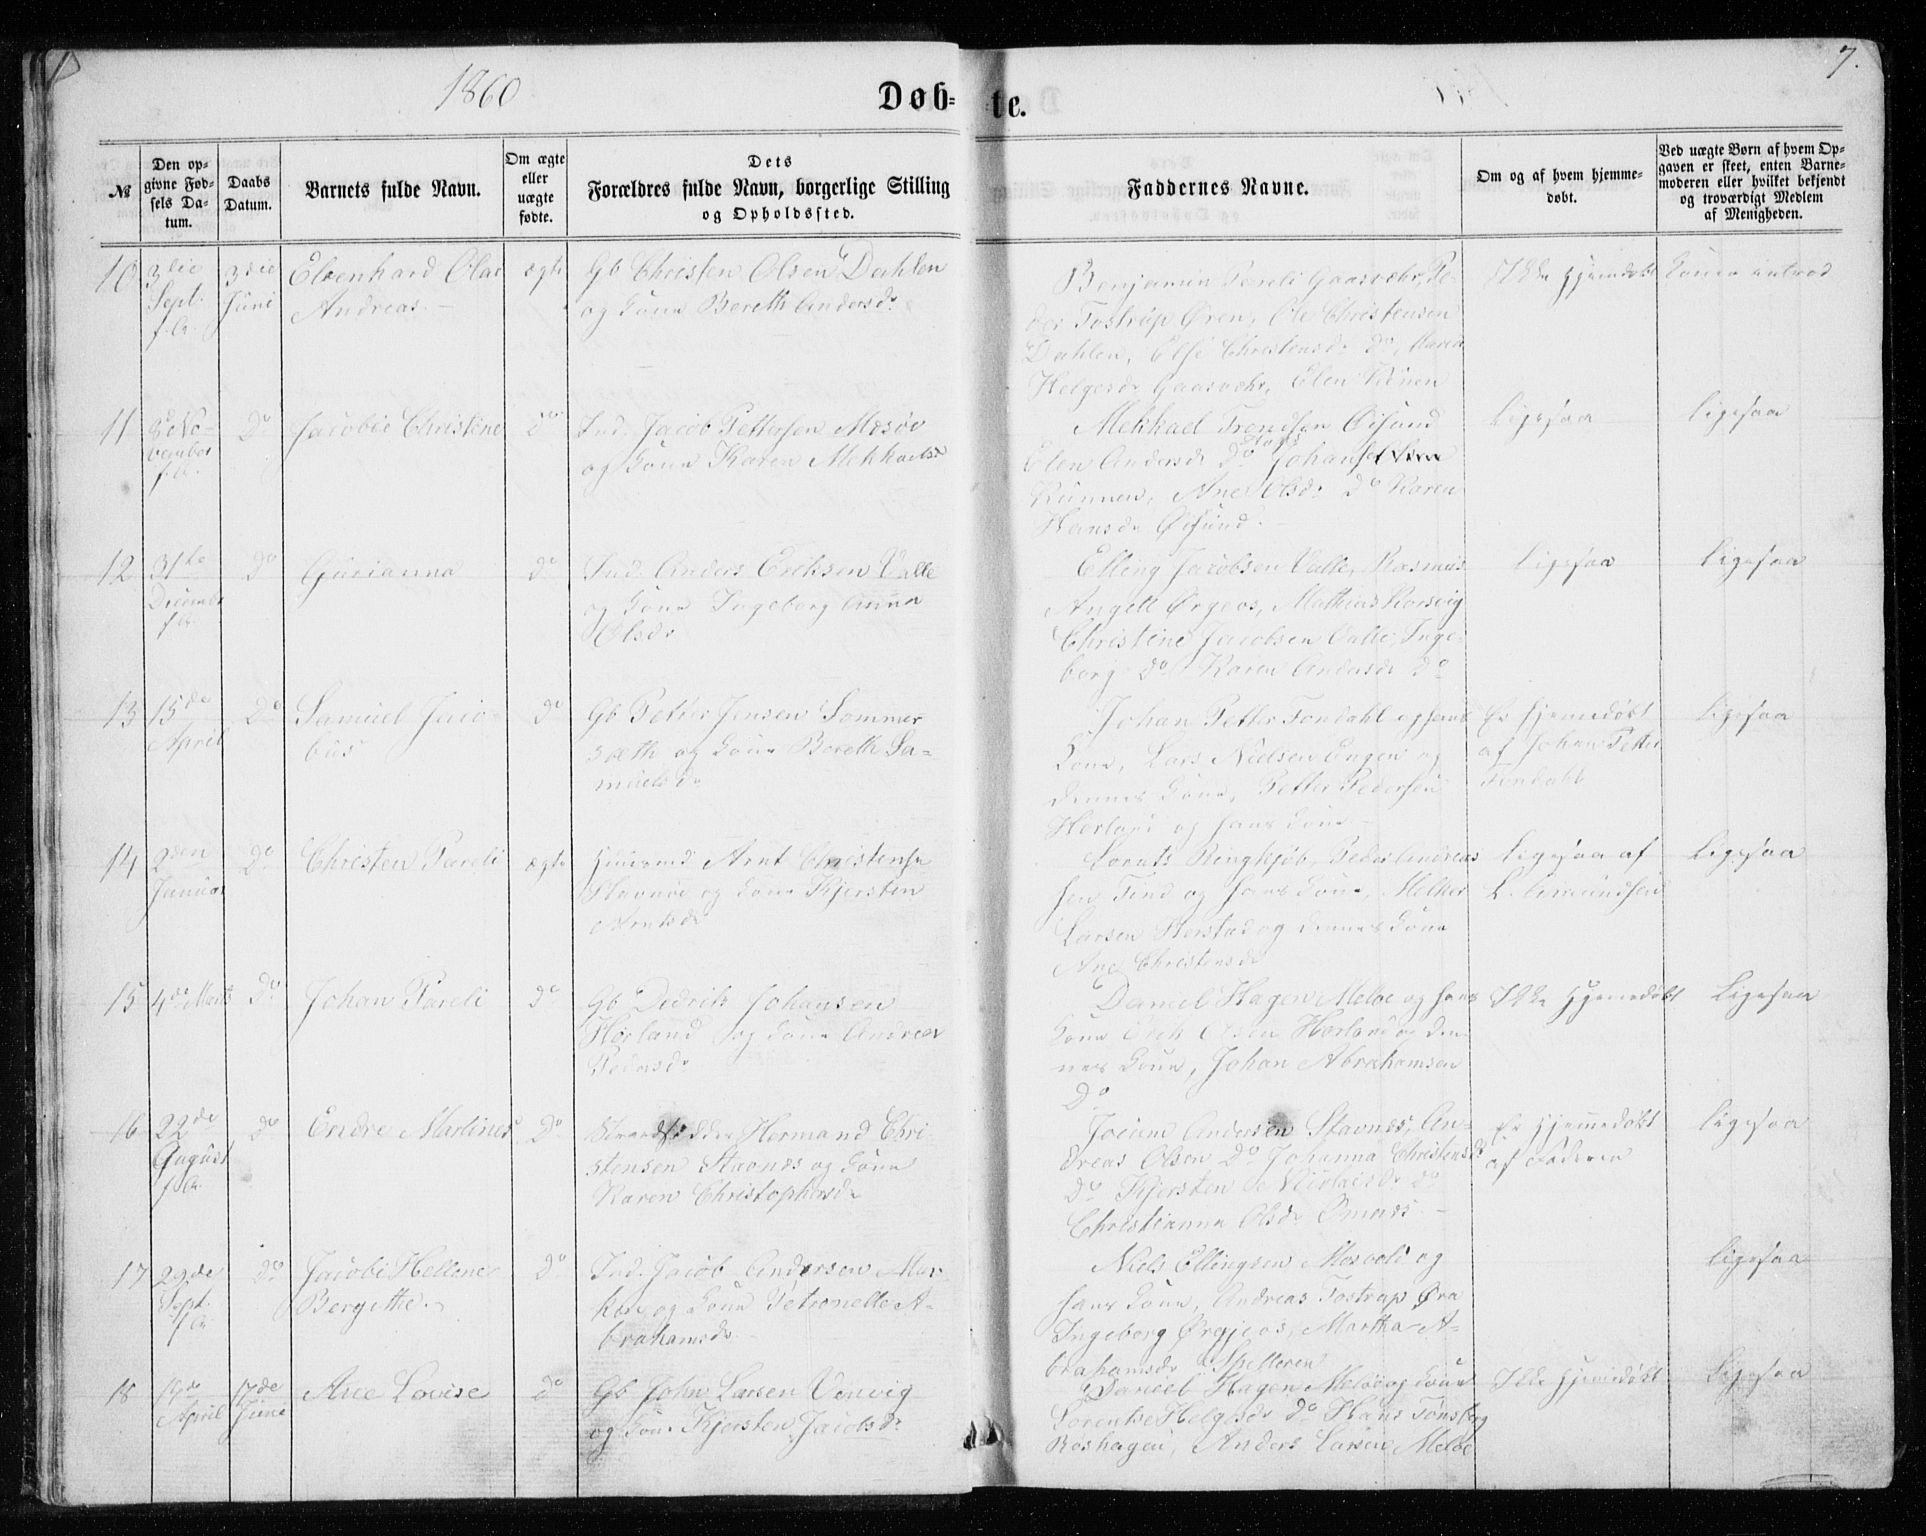 1860
Døb-
te.
7.
№
Den op-
givne Fød-
sels Da-
tum.
Daabs
Datum.
Barnets fulde Navn.
Om ægte
eller
uægte
fødte.
Dets
Forældres fulde Navn, borgerlige Stilling
og Opholdssted.
Faddernes Navne.
Om og af hvem hjemme-
døbt.
Ved uægte Børn af hvem Op-
gaven er skeet, enten Barne-
moderen eller hvilket bekjendt
og troværdigt Medlem
af Menigheden.
10
3die
Sept.
f. A.
3die
Juni
Edenhard Olai
Andreas.
ægte
Gb Christen Olsen Dahlen
og Kone Bereth Andersd.
Benjamin Pareli Gaasvær, Pe-
der Tostrup Øren, Ole Christensen
Dahlen, Else Christensd. Do, Maria
Helgesd. Gaasvær, Elen
Ikke Hjemdøbt
Konen introd
11
8de No-
vember
f. A.
Do
Jacobie Christine
Do
Ind. Jacob Pettersen Mesøe
og Kone Karen Mekkaelsd
Mekkael Trondsen Øisund
Elen Andersd Do Johan
Kunnen, Ane Olsd. Do Karen
Hansd. Øisund.
Ligesaa
Ligesaa
12
31te
Decembr
f. A.
Do
Gurianna
Do
Ind. Anders Eriksen Valle
og Kone Ingeborg Anna
Olsd.
Elling Jacobsen Valle, Rasmus
Angell Ørgeos, Mathias Korsvig
Christine Jacobsen Valle, Inge-
borg Do Karen Andersd. Do
Ligesaa
Ligesaa
13
15de
April
Do
Samuel Jaco-
bus
Do
Gb Petter Jensen Sommer
sæth og Kone Bereth Sa-
muelsd.
Johan Petter Fondahl og hans
Kone, Lars Nielsen Engen og
dennes Kone, Petter Pedersen
Horland og hans Kone
Er Hjemmedøbt
af Johan Petter
Fondahl
Ligesaa
14
2den
Januar
Do
Christen Pareli
ægte
Huusmd. Arnt Christensen
Stavnæs og Kone Kjersten
Arntsd.
Lornts Ringkjøb, Peder Andreas
sen Find og hans Kone, Melker
Larsen Storstad og dennes Kone
Ane Christensd.
Ligesaa af
L. Amundsen
Ligesaa
15
4de Marts
Do
Johan Pareli
Do
Gb Dedrik Johansen
Horland og Kone Andrea
Pedersd.
Daniel Hagen Meløe og hans
Kone Olsen Horland og den-
nes Kone, Johan Abrahamsen
Do
Ikke Hjemmedøbt
Ligesaa
16
22de
August
f. A.
Do
Endre Martines
Do
Strandsidder Hermand Chri-
stensen Stavnæs og Kone
Karen Christophersd.
Jocum Andersen Stavnæs, An-
dreas Olsen Do Johanna Christensd.
Do Kjersten Nicolaisd. Do
Christianna Olsd. Ørnæs.
Er Hjemmedøbt
af Faderen
Ligesaa
17
29de
Sept.
f. A.
Do
Jacobi Hellene
Bergithe.
Do
Ind. Jacob Andersen Mar-
køe og Kone Petronelle A-
brahamsd.
Niels Ellingsen Mosvold og
hans Kone, Andreas Tostrup Øra
Ingeborg Ørgjeos, Martha A-
brahamsd. Spelleren
Ligesaa
18
19de
April
17de
June
Ane Lovise
Do
Gb John Larsen Venvig
og Kone Kjersten Jacobsd.
Daniel Hagen Meløe og Kone
Lorentse Helgesd. Do Hans Tønsberg
Røshagen, Anders Larsen Meløe
Ikke Hjemdøbt
Ligesaa